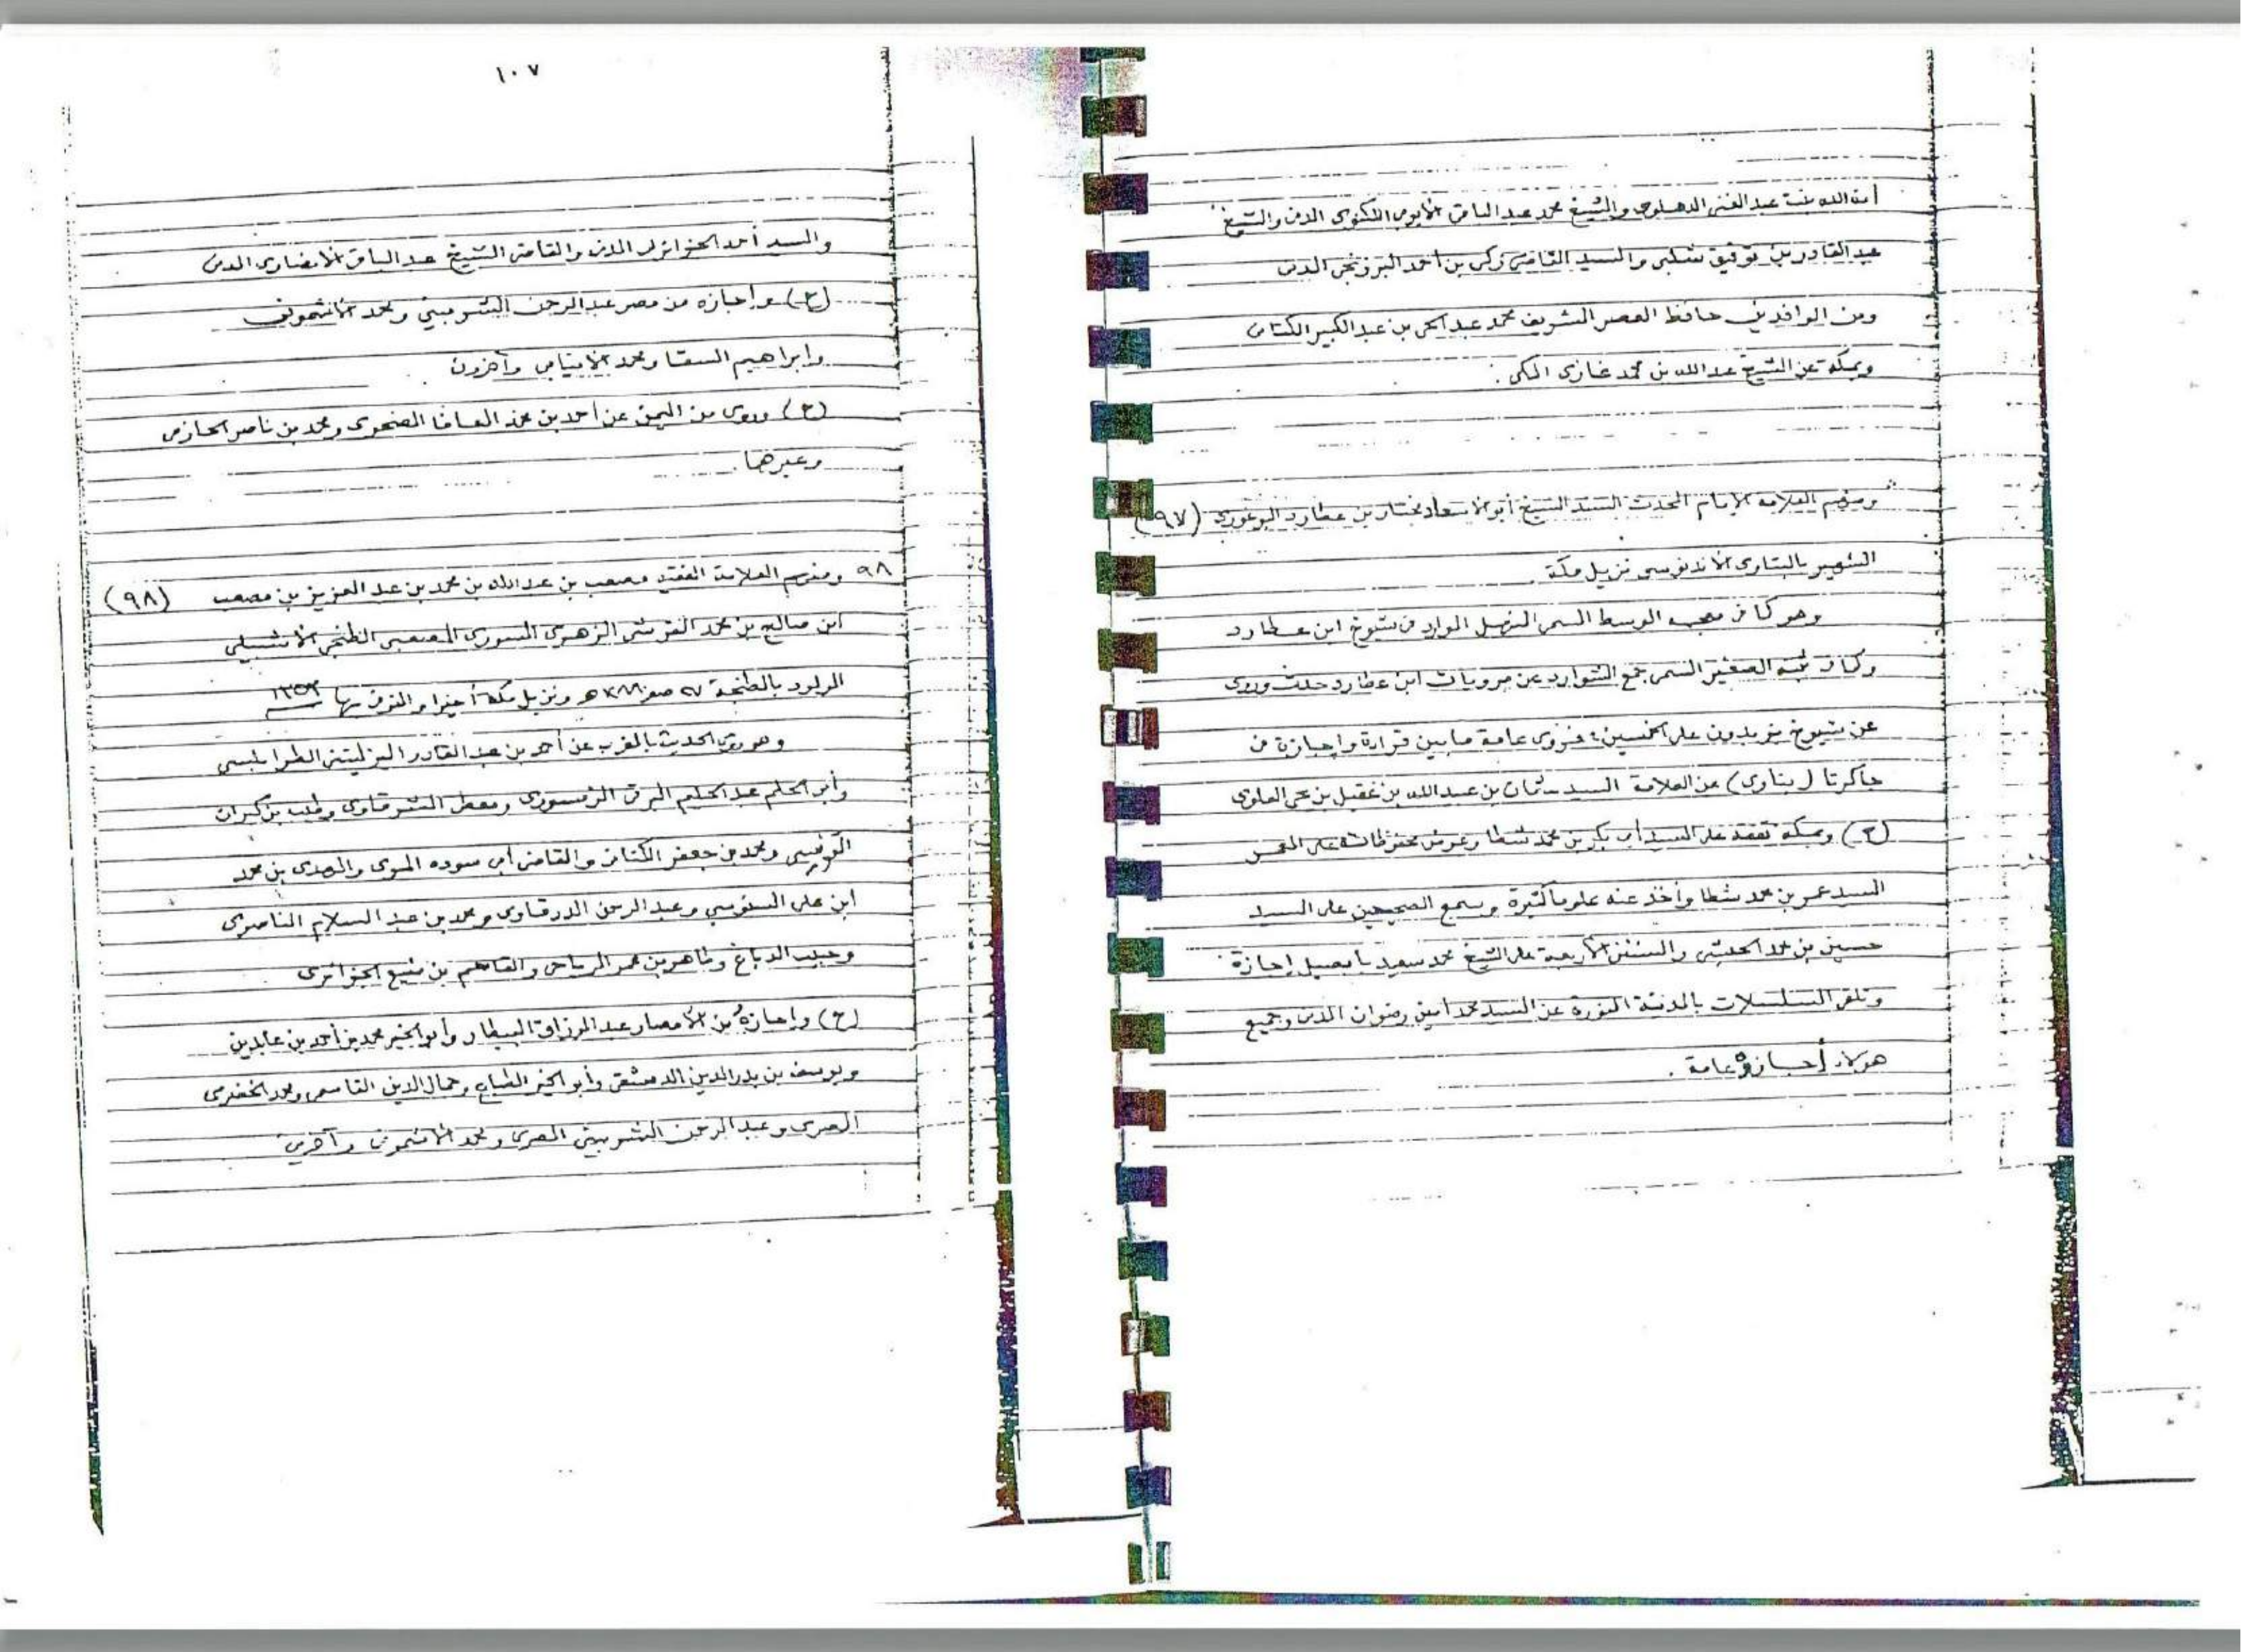 أمة الله بنت عبد الغني الدهلوي والشيخ محمد عبد الباقي الأيوبي اللكنوي المدني والشيخ
عبد القادر بن توفيق شلبي والسيد القاضي زكي بن أحمد البرزنجي المدني
ومن الوافدين حافظ العصر الشريف محمد عبد الحي بن عبد الكبير الكتاني
وبمكة عن الشيخ عبد الله بن محمد غازي المكي .
ومنهم العلامة الإمام المحدث المسند الشيخ أبو الاسعاد مختار بن عطارد البوغوري (٩٧)
الشهير بالبتاوي الأندونوسي نزيل مكة
وهو كما في معجمه الوسط السمى المنهل الوارد في شيوخ ابن عطارد
وكما في ثبته الصغير السمى جمع الشوارد عن مرويات ابن عطارد حدث وروى
عن شيوخ يزيدون على الخمسين؛ فروى عامة ما بين قراءة وإجازة في
جاكرتا (بتاوى) عن العلامة السيد عثمان بن عبد الله بن عقيل بن يحي العلوي
(ح) وبمكة تفقه على السيد أبي بكر بن محمد شطا وعرض محفوظاته على
السيد عمر بن محمد شطا وأخذ عنه علوما كثيرة وسمع الصحيحين على السيد
حسين بن محمد الحبشي والسنن الأربعة على الشيخ محمد سعيد بابصيل إجازة
وتلقى المسلسلات بالمدينة المنورة عن السيد محمد أمين رضوان المدني وجميع
هؤلاء أجازوه عامة .
١٠٧
والسيد أحمد الجزائرلي المدني والقاضي الشيخ عبد الباقي الأنصاري المدني
(ح) وإجازه من مصر عبد الرحمن الشربيني ومحمد الأشموني
وابراهيم السقا ومحمد الإنبابي وآخرون
(ح) وروى من اليمن عن أحمد بن محمد العافا الضحوي ومحمد بن ناصر الحازمي
وغيرها .
٩٨ ومنهم العلامة الفقيه مصعب بن عبد الله بن محمد بن عبد العزيز بن مصعب (٩٨)
ابن صالح بن محمد القرشي الزهري المسوري المصعبي الطنجي الاشبيلي
المولود بالطنجة ٢٧ صفر هـ ونزيل مكة أخيرا والمتوفى بها ١٣٥٣
وهو روى الحديث بالمغرب عن أحمد بن عبد القادر اليزليتني الطرابلسي
وأبو الحلم عبد الحليم البرقي ومعطى الشرقاوي وطيب بن كيران
ومحمد بن جعفر الكتاني والقاضي أبي سوده المري والمهدي بن محمد
ابن علي السنوسي وعبد الرحمن الدرقاوي ومحمد بن عبد السلام الناصري
وحبيب الدباغ وطاهر بن عمر الرياحي والقاسم بن منيع الجزائري
(ح) وإجازهُ من الأمصار عبد الرزاق البيطار وأبو الخير محمد بن أحمد بن عابدين
ويوسف بن بدر الدين الدمشقي وأبو الخير الطباع وجمال الدين القاسمي ومحمد الخضري
المصري وعبد الرحمن الشربيني المصري ومحمد الأشموني وآخرين